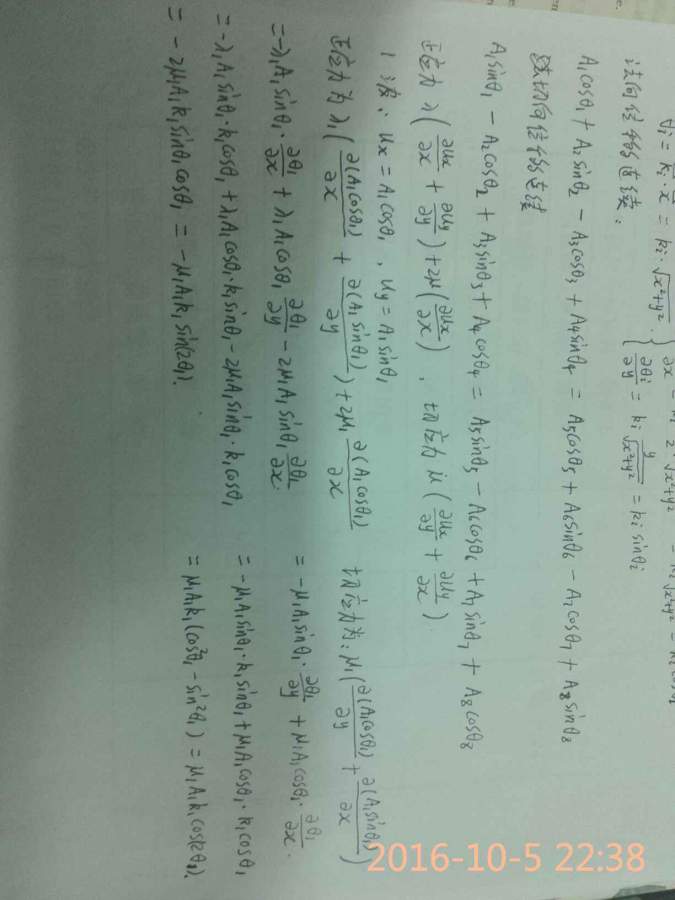 θi = ki · x = ki · √(x²+y²) . { ∂θi/∂y = ki y/√(x²+y²) = ki sinθi
法向位移连续:
A1cosθ1 + A2sinθ2 - A3cosθ3 + A4sinθ4 = A5cosθ5 + A6sinθ6 - A7cosθ7 + A8sinθ8
切向位移连续
A1sinθ1 - A2cosθ2 + A3sinθ3 + A4cosθ4 = A5sinθ5 - A6cosθ6 + A7sinθ7 + A8cosθ8
正应力 λ(∂ux/∂x + ∂uy/∂y) + 2μ(∂ux/∂x) , 切应力 μ(∂ux/∂y + ∂uy/∂x)
1波: ux = A1cosθ1 , uy = A1sinθ1
正应力为 λ1(∂(A1cosθ1)/∂x + ∂(A1sinθ1)/∂y) + 2μ1 ∂(A1cosθ1)/∂x 切应力为: μ1(∂(A1cosθ1)/∂y + ∂(A1sinθ1)/∂x)
= -λ1A1sinθ1 · ∂θ1/∂x + λ1A1cosθ1 ∂θ1/∂y - 2μ1A1sinθ1 ∂θ1/∂x. = -μ1A1sinθ1 · ∂θ1/∂y + μ1A1cosθ1 · ∂θ1/∂x.
= -λ1A1sinθ1 · k1cosθ1 + λ1A1cosθ1 · k1sinθ1 - 2μ1A1sinθ1 · k1cosθ1 = -μ1A1sinθ1 · k1sinθ1 + μ1A1cosθ1 · k1cosθ1
= -2μ1A1k1sinθ1cosθ1 = -μ1A1k1sin(2θ1). = μ1A1k1(cos²θ1 - sin²θ1) = μ1A1k1cos(2θ1).
2016-10-5 22:38